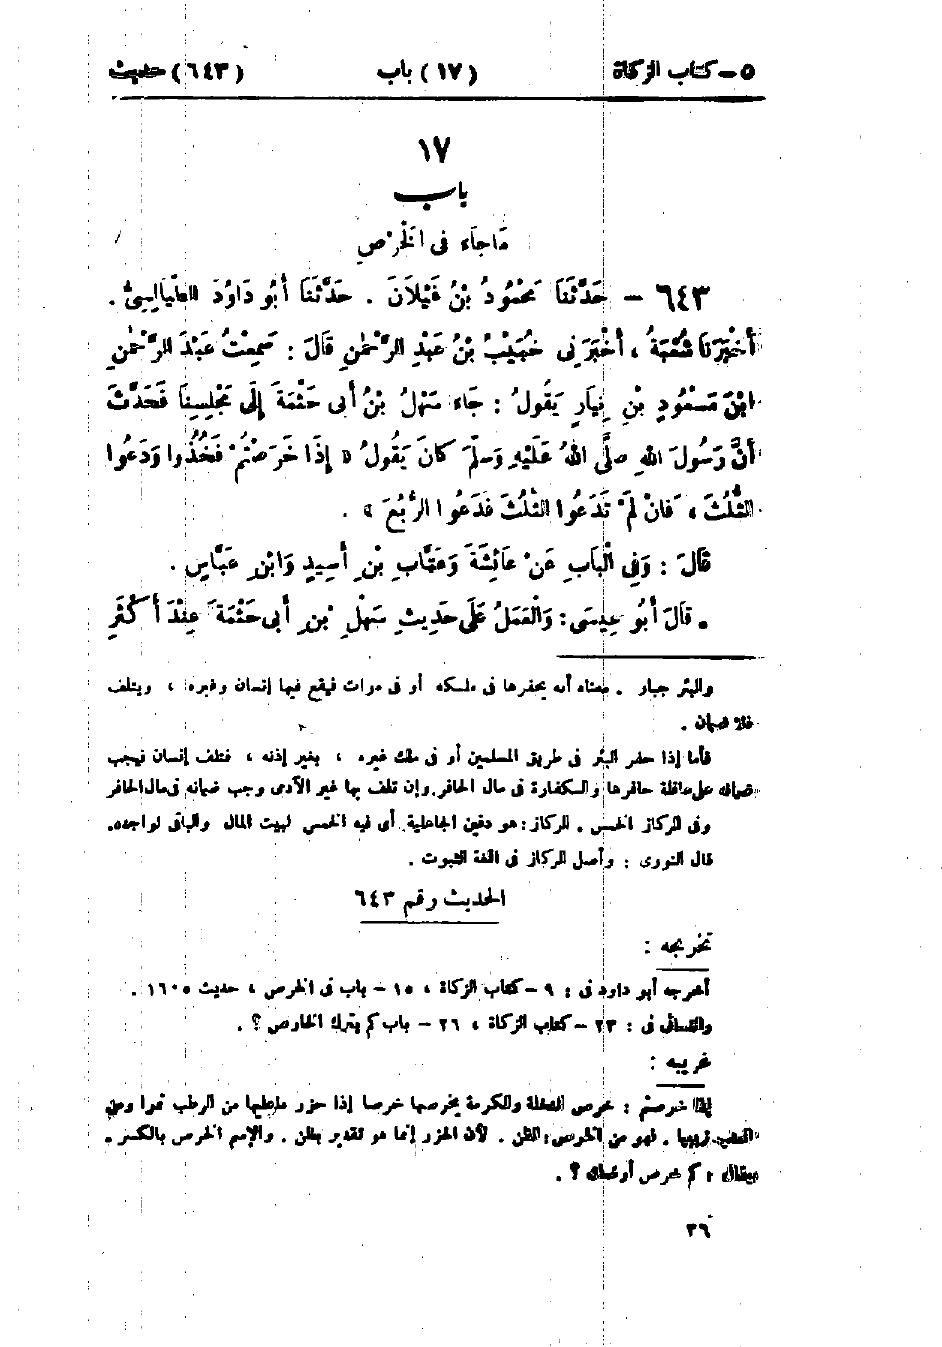 ٥ – كتاب الزكاة (١٧) باب (٦٤٣) حديث
١٧
باب
مَا جَاءَ فى الْخَرْصِ
٦٤٣ – حَدَّثَنَا مَحْمُودُ بْنُ غَيْلَانَ . حَدَّثَنَا أَبُو دَاوُدَ الطَّيَالِسِىُّ .
أَخْبَرَنَا شُعْبَةُ ، أَخْبَرَنِى خُبَيْبُ بْنُ عَبْدِ الرَّحْمٰنِ قَالَ : سَمِعْتُ عَبْدَ الرَّحْمٰنِ
ابْنَ مَسْعُودِ بْنِ نِيَارٍ يَقُولُ : جَاءَ سَهْلُ بْنُ أَبى حَثْمَةَ إِلَى مَجْلِسِنَا فَحَدَّثَ
أَنَّ رَسُولَ اللهِ صَلَّى اللهُ عَلَيْهِ وَسَلَّمَ كَانَ يَقُولُ « إِذَا خَرَصْتُمْ فَخُذُوا وَدَعُوا
الثُّلُثَ ، فَانْ لَمْ تَدَعُوا الثُّلُثَ فَدَعُوا الرُّبُعَ » .
قَالَ : وَفِى الْبَابِ عَنْ عَائِشَةَ وَعَتَّابِ بْنِ أَسِيدٍ وَابْنِ عَبَّاسٍ .
• قَالَ أَبُو عِيسَى : وَالْعَمَلُ عَلَى حَدِيثِ سَهْلِ بْنِ أَبى حَثْمَةَ عِنْدَ أَكْثَرِ
والبئر جبار . معناه أنه يحفرها فى ملكه أو فى موات فيقع فيها إنسان وغيره ، ويتلف
فلا ضمان .
فأما إذا حفر البئر فى طريق المسلمين أو فى ملك غيره ، بغير إذنه ، فتلف إنسان فيجب
ضمانه على عاقلة حافرها والكفارة فى مال الحافر. وإن تلف بها غير الآدمى وجب ضمانه فى مال الحافر
وفى الركاز الخمس . الركاز : هو دفين الجاهلية. أى فيه الخمس لبيت المال والباقى لواجده.
قال النووى : وأصل الركاز فى اللغة الثبوت .
الحديث رقم ٦٤٣
تخريجه :
أخرجه أبو داود فى : ٩ – كتاب الزكاة ، ١٥ – باب فى الخرص ، حديث ١٦٠٥ .
والنسائى فى : ٢٣ – كتاب الزكاة ، ٢٦ – باب كم يترك الخارص ؟ .
غريبه :
إذا خرصتم : خرص النخلة والكرمة يخرصها خرصا إذا حزر ما عليها من الرطب تمرا ومن
العنب زبيبا . فهو من الخرص : الظن . لأن الحزر إنما هو تقدير بظن . والإسم الخرص بالكسر .
يقال : كم خرص أرضك ؟ .
٢٦